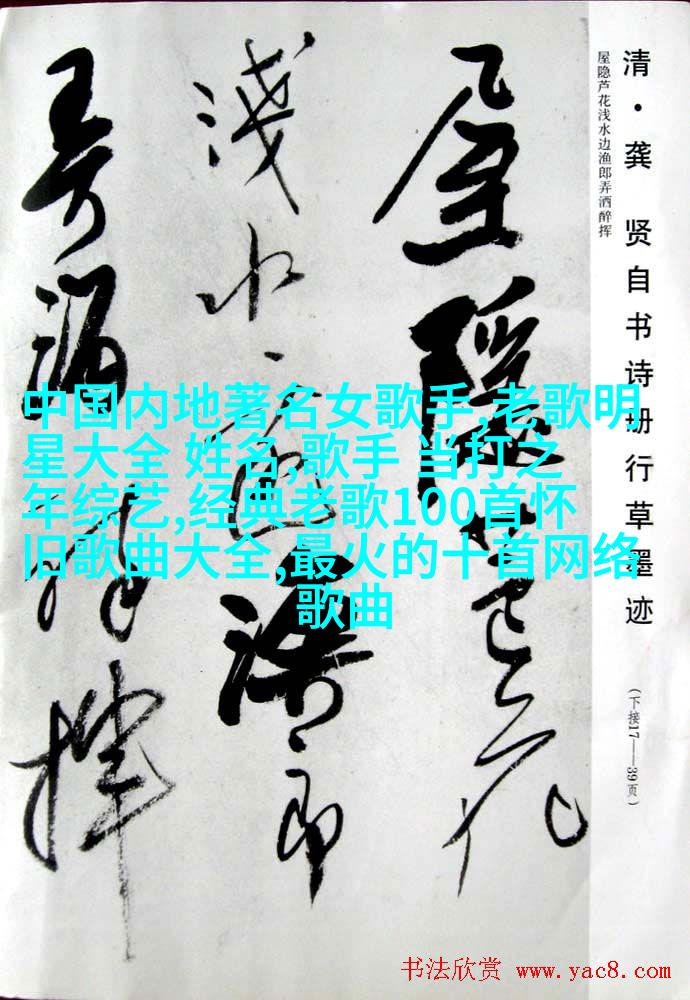 清·龚 贤自书诗册行草墨迹
屋隐芦花浅水边渔郎弄洒醉挥
(下接17——39页)
屋隐芦花
浅水边渔郎
弄酒醉挥
中国内地著名女歌手,老歌明
星大全 姓名,歌手 当打之
年综艺,经典老歌100首怀
旧歌曲大全,最火的十首网络
歌曲
书法欣赏 www.yac8.com